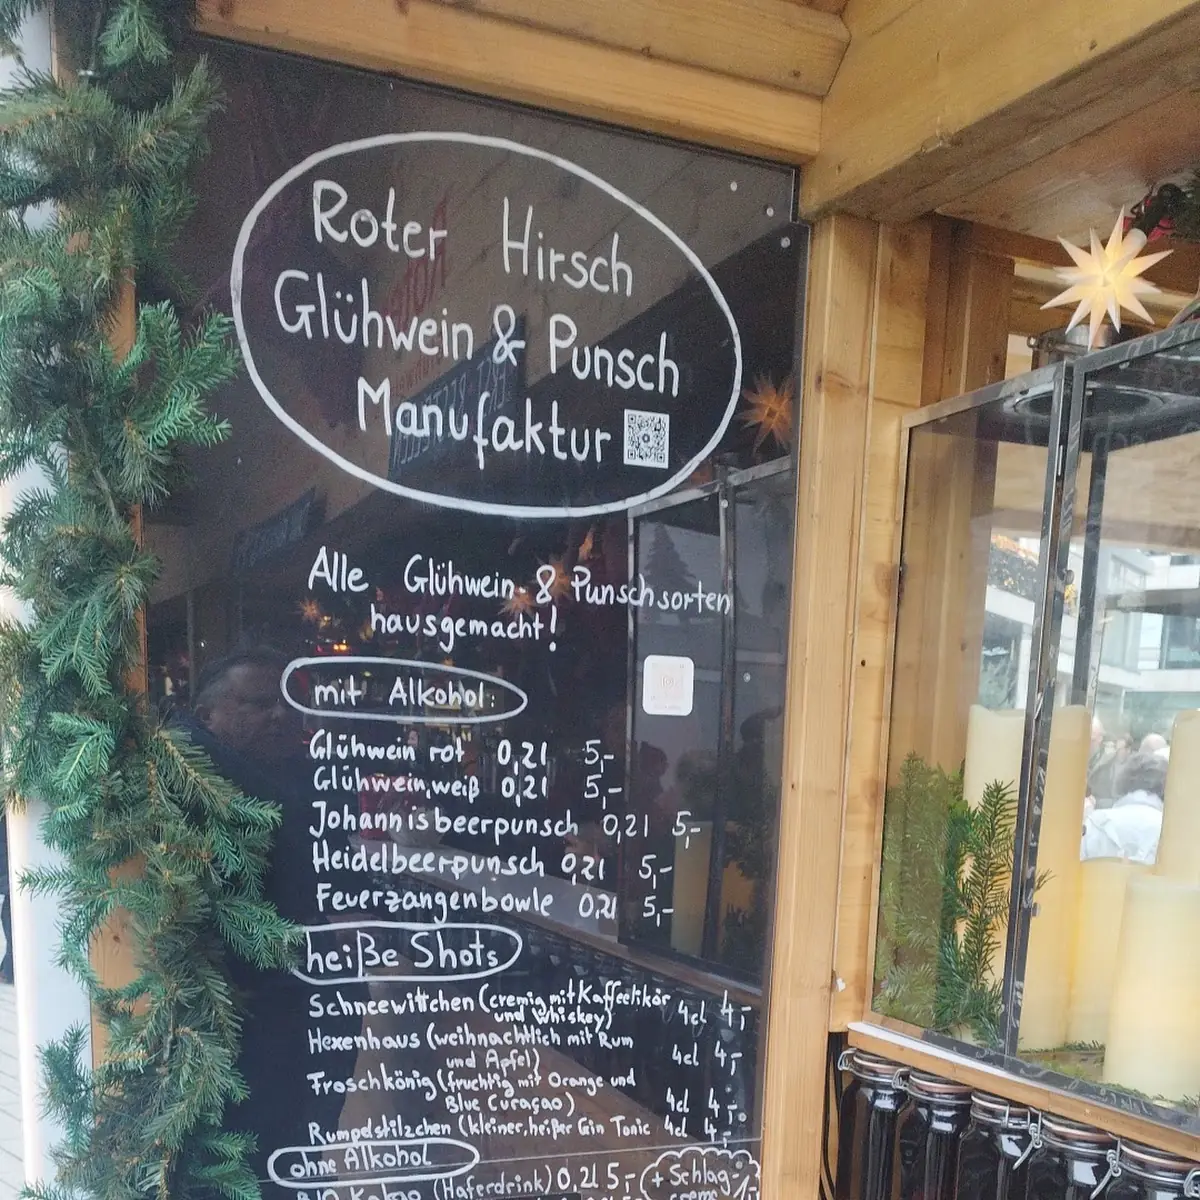 Roter Hirsch
Glühwein & Punsch
Manufaktur
Alle Glühwein- & Punschsorten
hausgemacht!
mit Alkohol:
Glühwein rot 0,2l 5,-
Glühwein, weiß 0,2l 5,-
Johannisbeerpunsch 0,2l 5,-
Heidelbeerpunsch 0,2l 5,-
Feuerzangenbowle 0,2l 5,-
heiße Shots
Schneewittchen (cremig mit Kaffeelikör
und Whiskey) 4cl 4,-
Hexenhaus (weihnachtlich mit Rum
und Apfel) 4cl 4,-
Froschkönig (fruchtig mit Orange und
Blue Curaçao) 4cl 4,-
Rumpelstilzchen (kleiner, heißer Gin Tonic 4cl 4,-
ohne Alkohol
BIO Kakao (Haferdrink) 0,2l 5,- (+ Schlag-
creme 1,-